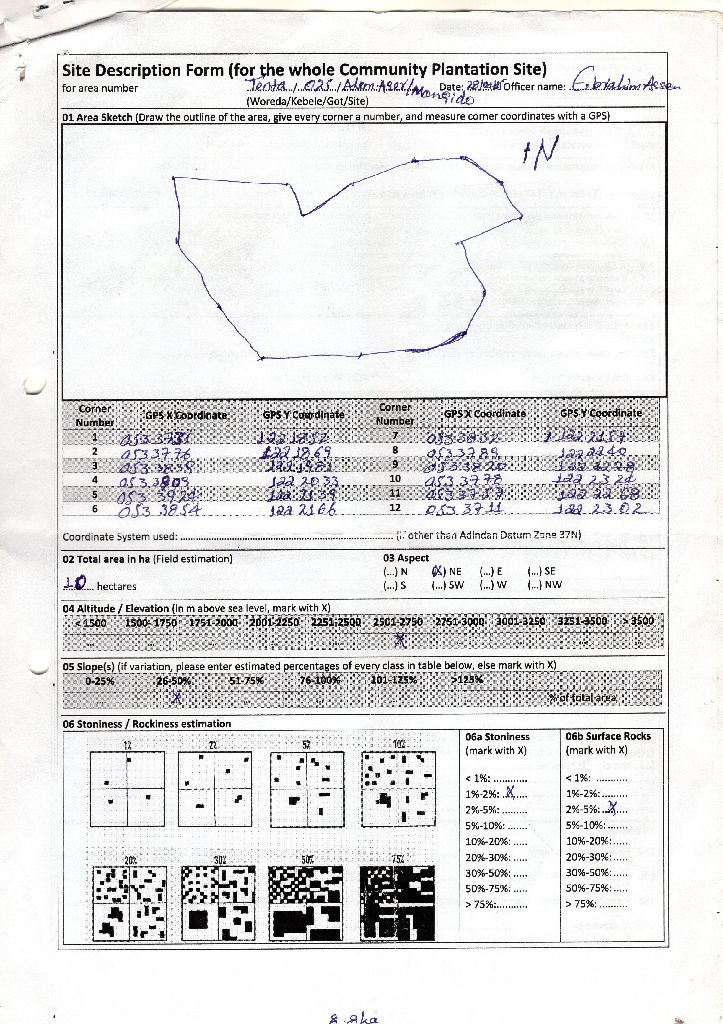 Site Description Form (for the whole Community Plantation Site)
for area number Tenta / 025 / Date: Officer name: Eibrahim Assen
(Woreda/Kebele/Got/Site)
01 Area Sketch (Draw the outline of the area, give every corner a number, and measure corner coordinates with a GPS)
N
Corner Number GPS X Coordinate GPS Y Coordinate Corner Number GPS X Coordinate GPS Y Coordinate
1 7
2 0533776 1221869 8 0533789 1222240
3 9
4 0533809 1222033 10 0533778 1222324
5 0533924 1222139 11 0533757 1222268
6 0533854 1222166 12 0533711 1222302
Coordinate System used: ........ (if other than Adindan Datum Zone 37N)
02 Total area in ha (Field estimation)
10 hectares
03 Aspect
(...) N (X) NE (...) E (...) SE
(...) S (...) SW (...) W (...) NW
04 Altitude / Elevation (in m above sea level, mark with X)
< 1500 1500-1750 1751-2000 2001-2250 2251-2500 2501-2750 2751-3000 3001-3250 3251-3500 > 3500
X
05 Slope(s) (if variation, please enter estimated percentages of every class in table below, else mark with X)
0-25% 26-50% 51-75% 76-100% 101-125% >125%
X % of total area
06 Stoniness / Rockiness estimation
1% 2% 5% 10%
20% 30% 50% 75%
06a Stoniness
(mark with X)
< 1%: ...........
1%-2%: ..X....
2%-5%: ........
5%-10%: ......
10%-20%: .....
20%-30%: .....
30%-50%: .....
50%-75%: .....
> 75%: ..........
06b Surface Rocks
(mark with X)
< 1%: ..........
1%-2%: .........
2%-5%: ..X....
5%-10%: ......
10%-20%: .....
20%-30%: .....
30%-50%: .....
50%-75%: .....
> 75%: ..........
8.8ha